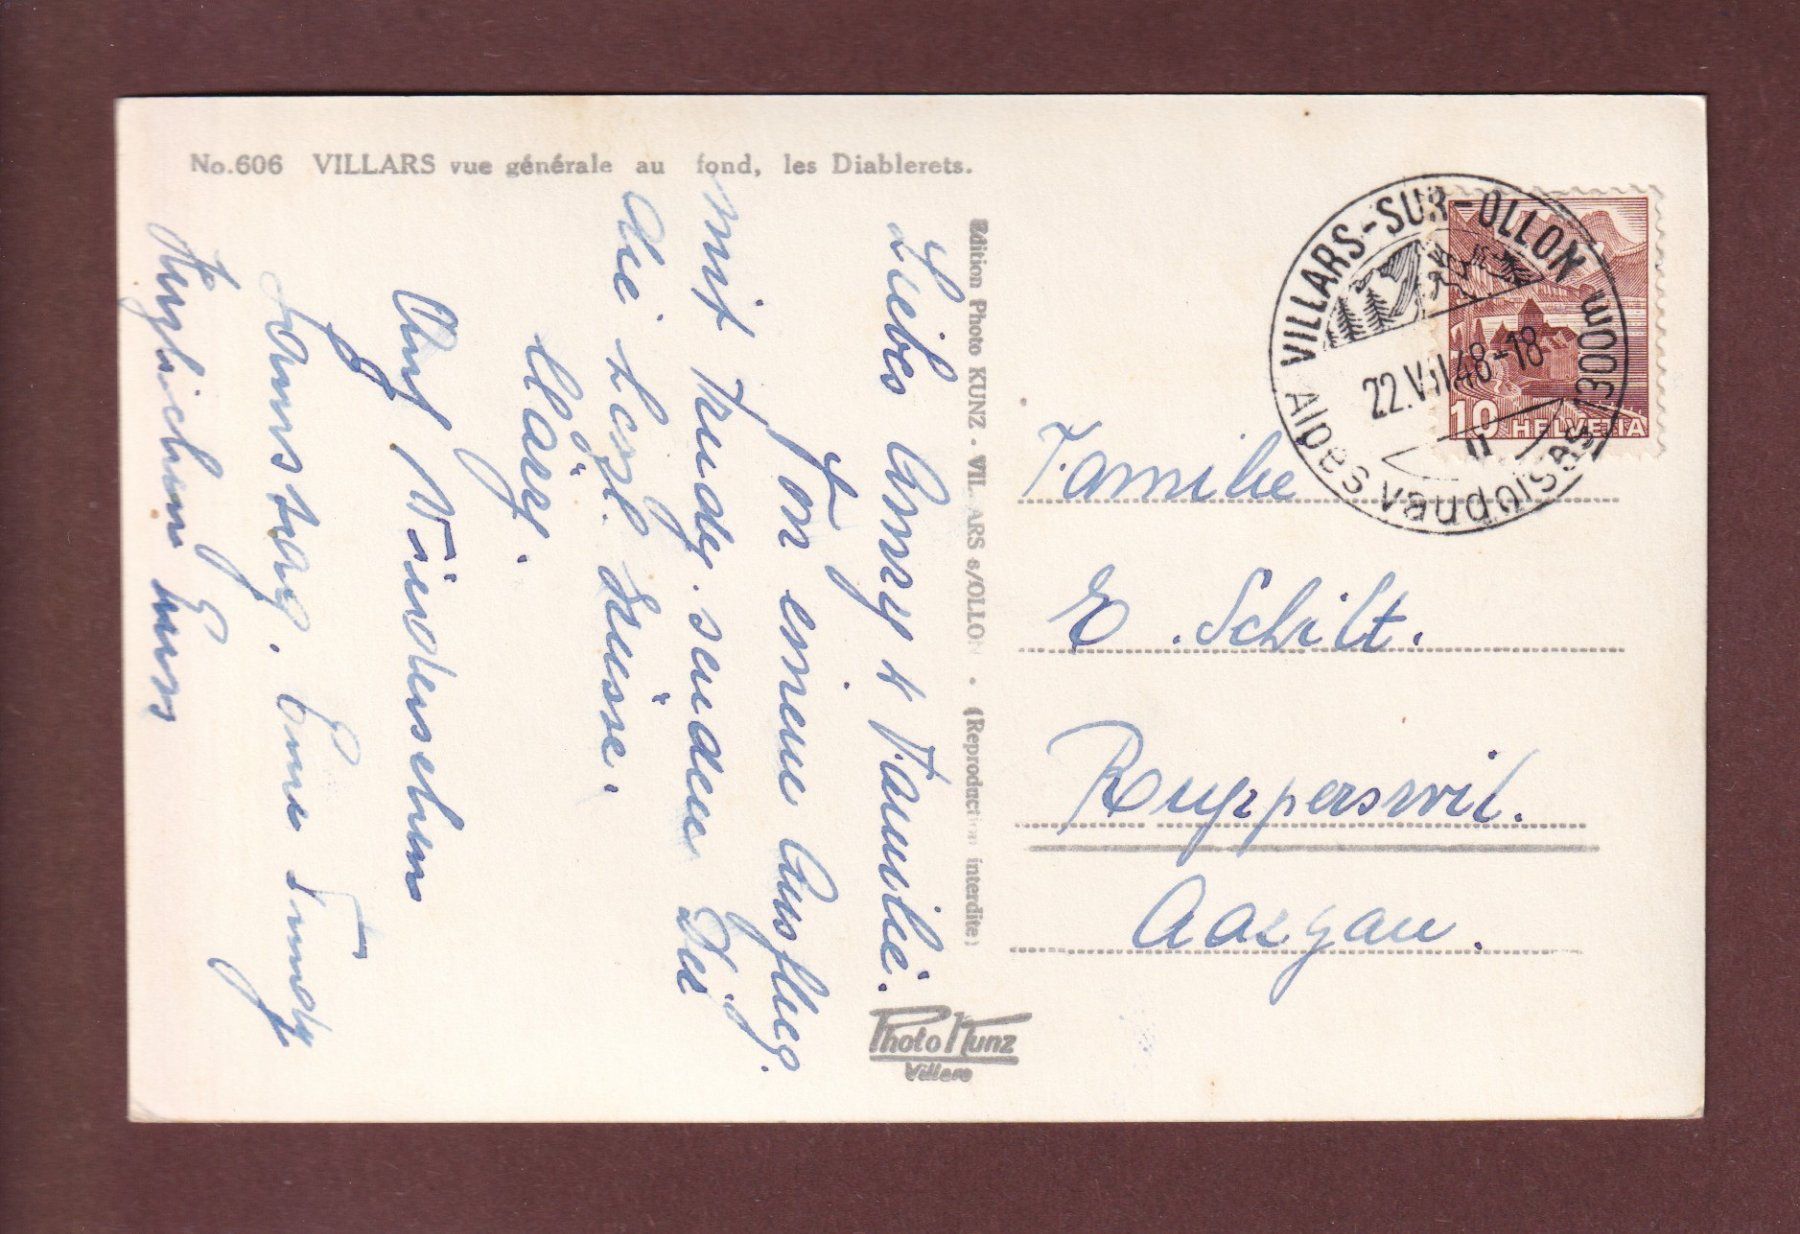 No.606 VILLARS vue générale au fond, les Diablerets.
Liebes Anny & Familie.
Von einem Ausflug
mit Trudy senden Dir
die herzl. Grüsse.
Märy.
Auf Wiedersehen
Samstag. Eure Trudy
Herzlichen
Edition Photo KUNZ - VILLARS s/OLLON - (Reproduction interdite)
Photo Kunz
Villars
VILLARS-SUR-OLLON 1300m
22.VII.48-18
Alpes vaudoises
10 HELVETIA
Familie
E. Schilt.
Rupperswil.
Aargau.